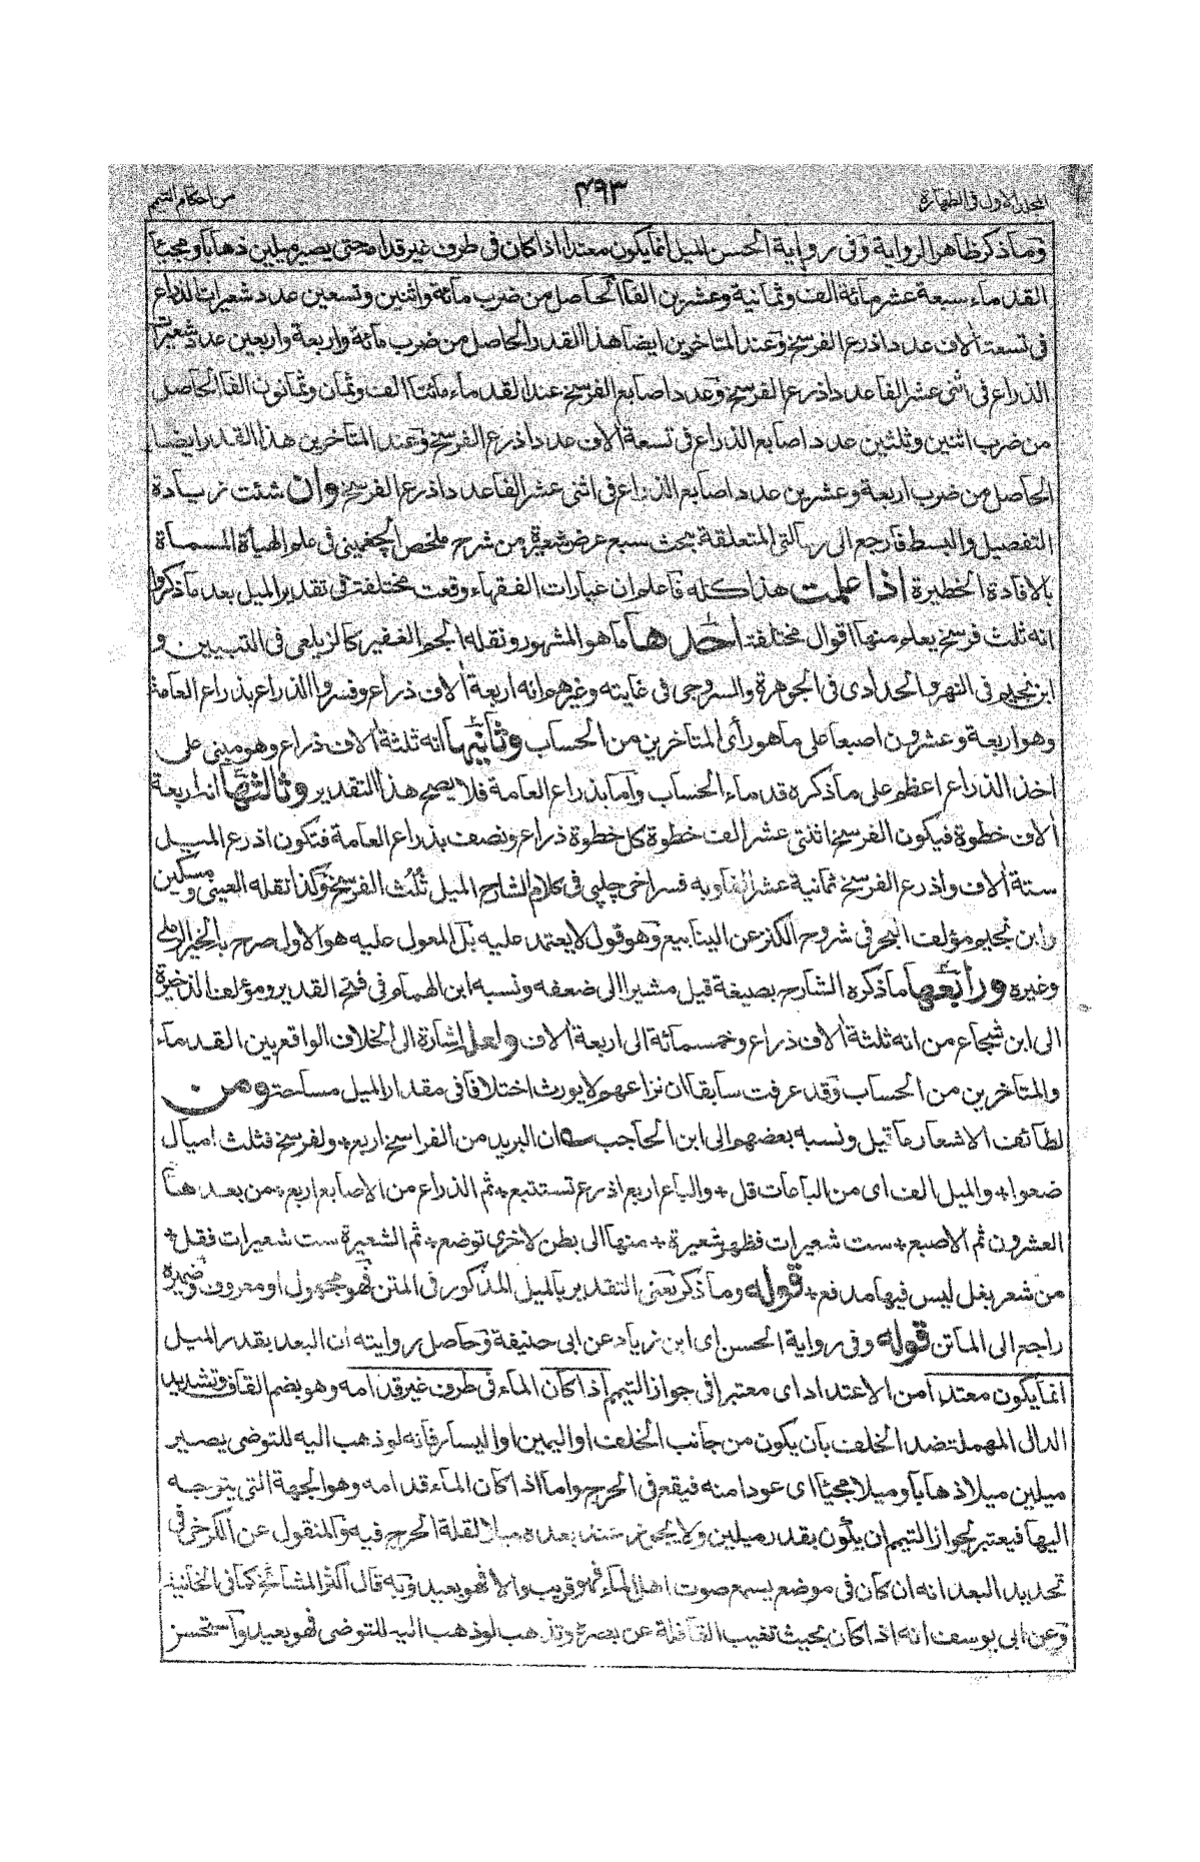 المجلد الاول فى الطهارة
٤٩٣
من احكام التيمم
وما ذكر ظاهر الرواية وفى رواية الحسن الميل انما يكون معتدا اذا كان فى طرف غير قدامه حتى يصير ميلين ذهابا ومجيئا
القدماء سبعة عشر مائة الف وثمانية وعشرين الفا الحاصل من ضرب مائة واثنين وتسعين عدد شعيرات الذراع
فى تسعة الاف عدد اذرع الفرسخ وعند المتاخرين ايضا هذا القدر الحاصل من ضرب مائة واربعة واربعين عدد شعيرات
الذراع فى اثنى عشر الفا عدد اذرع الفرسخ وعدد اصابع الفرسخ عند القدماء مائتا الف وثمان وثمانون الفا الحاصل
من ضرب اثنين وثلثين عدد اصابع الذراع فى تسعة الاف عدد اذرع الفرسخ وعند المتاخرين هذا القدر ايضا
الحاصل من ضرب اربعة وعشرين عدد اصابع الذراع فى اثنى عشر الفا عدد اذرع الفرسخ وان شئت زيادة
التفصيل والبسط فارجع الى رسالتى المتعلقة ببحث سبع عرض شعيرة من شرح ملخص الچغمينى فى علم الهيأة المسماة
بالافادة الخطيرة اذا علمت هذا كله فاعلم ان عبارات الفقهاء وقعت مختلفة فى تقدير الميل بعد ما ذكروا
انه ثلث فرسخ يعلم منها اقوال مختلفة احدها ما هو المشهور ونقله الجم الغفير كالزيلعى فى التبيين و
ابن نجيم فى النهر والحدادى فى الجوهرة والسروجى فى غايته وغيرهم انه اربعة الاف ذراع وفسروا الذراع بذراع العامة
وهو اربعة وعشرون اصبعا على ما هو رأى المتاخرين من الحساب وثانيها انه ثلثة الاف ذراع وهو مبنى على
اخذ الذراع اعظم على ما ذكره قدماء الحساب واما بذراع العامة فلا يصح هذا التقدير وثالثها انه اربعة
الاف خطوة فيكون الفرسخ اثنتى عشر الف خطوة كل خطوة ذراع ونصف بذراع العامة فتكون اذرع الميل
ستة الاف واذرع الفرسخ ثمانية عشر الفا وبه فسر اخى چلپى فى كلام الشارح الميل ثلث الفرسخ وكذا نقله العينى ومسكين
وابن نجيم مؤلف البحر فى شروح الكنز عن الينابيع وهو قول لا يعتمد عليه بل المعول عليه هو الاول صرح به الخير الرملى
وغيره ورابعها ما ذكره الشارح بصيغة قيل مشيرا الى ضعفه ونسبه ابن الهمام فى فتح القدير ومؤلف الذخيرة
الى ابن شجاع من انه ثلثة الاف ذراع وخمسمائة الى اربعة الاف ولعل اشارة الى الخلاف الواقع بين القدماء
والمتاخرين من الحساب وقد عرفت سابقا ان نزاعهم لا يورث اختلافا فى مقدار الميل مساحة ومن
لطائف الاشعار ما قيل ونسبه بعضهم الى ابن الحاجب ان البريد من الفراسخ اربع + ولفرسخ فثلث اميال
ضعوا + والميل الف اى من الباعات قل + والباع اربع اذرع تستتبع + ثم الذراع من الاصابع اربع + من بعدها
العشرون ثم الاصبع + ست شعيرات فظهر شعيرة + منها الى بطن لاخرى توضع + ثم الشعيرة ست شعيرات فقل +
من شعر بغل ليس فيها مدفع + قوله وما ذكر يعنى التقدير بالميل المذكور فى المتن فهو مجهول او معروف وضميره
راجع الى الماتن قوله وفى رواية الحسن اى ابن زياد عن ابى حنيفة وحاصل روايته ان البعد بقدر الميل
انما يكون معتدا من الاعتداد اى معتبرا فى جواز التيمم اذا كان الماء فى طرف غير قدامه وهو بضم القاف وتشديد
الدال المهملة ضد الخلف بان يكون من جانب الخلف او اليمين او اليسار فانه لو ذهب اليه للتوضى يصير
ميلين ميلا ذهابا وميلا مجيئا اى عودا منه فيقع فى الحرج واما اذا كان الماء قدامه وهو الجهة التى يتوجه
اليها فيعتبر لجواز التيمم ان يكون بقدر ميلين ولا يجوز عند بعده ميلا لقلة الحرج فيه والمنقول عن الكرخى فى
تحديد البعد انه ان كان فى موضع يسمع صوت اهل الماء فهو قريب والا فهو بعيد وبه قال اكثر المشائخ كما فى الخانية
وعن ابى يوسف انه اذا كان بحيث تغيب القافلة عن بصره وتذهب لو ذهب اليه للتوضى فهو بعيد واستحسن